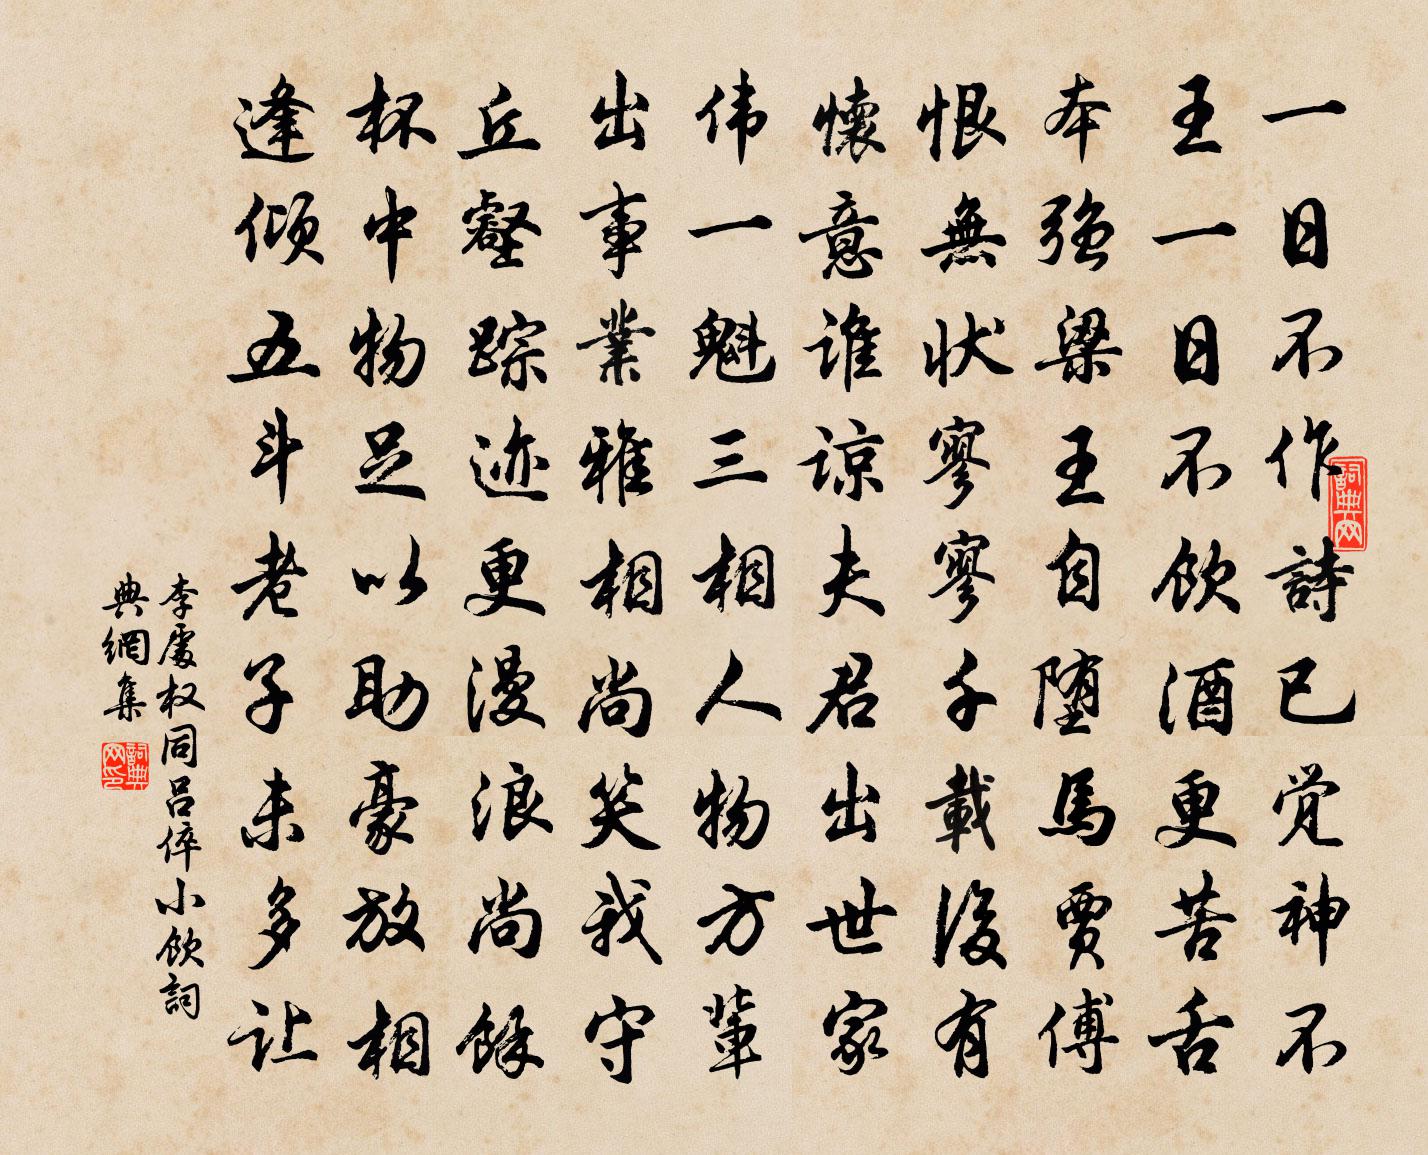 一日不作詩已觉神不
王一日不飲酒更苦舌
本强梁王自堕馬賈傅
恨無状寥寥千載後有
懷意谁谅夫君出世家
伟一魁三相人物方輩
出事業雅相尚笑我守
丘壑踪迹更漫浪尚餘
杯中物足以助豪放相
逢倾五斗老子未多让
李處权同吕倅小飲詞
典網集
詞典网
詞典网印